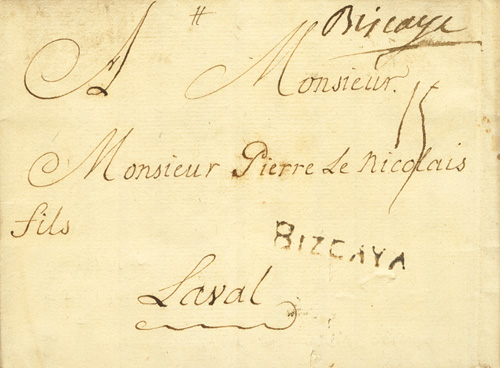 Biscaye
A Monsieur.
15
Monsieur Pierre Le Nicolais
fils
BIZCAYA
Laval